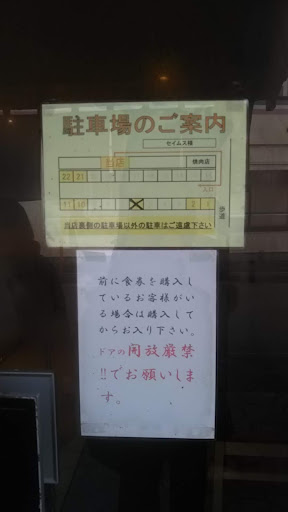 駐車場のご案内
セイムス様
当店
焼肉店
22 21
入口
11 10
2 1
歩道
当店裏側の駐車場以外の駐車はご遠慮下さい
前に食券を購入し
ているお客様がい
る場合は購入して
からお入り下さい。
ドアの開放厳禁
!!でお願いしま
す。